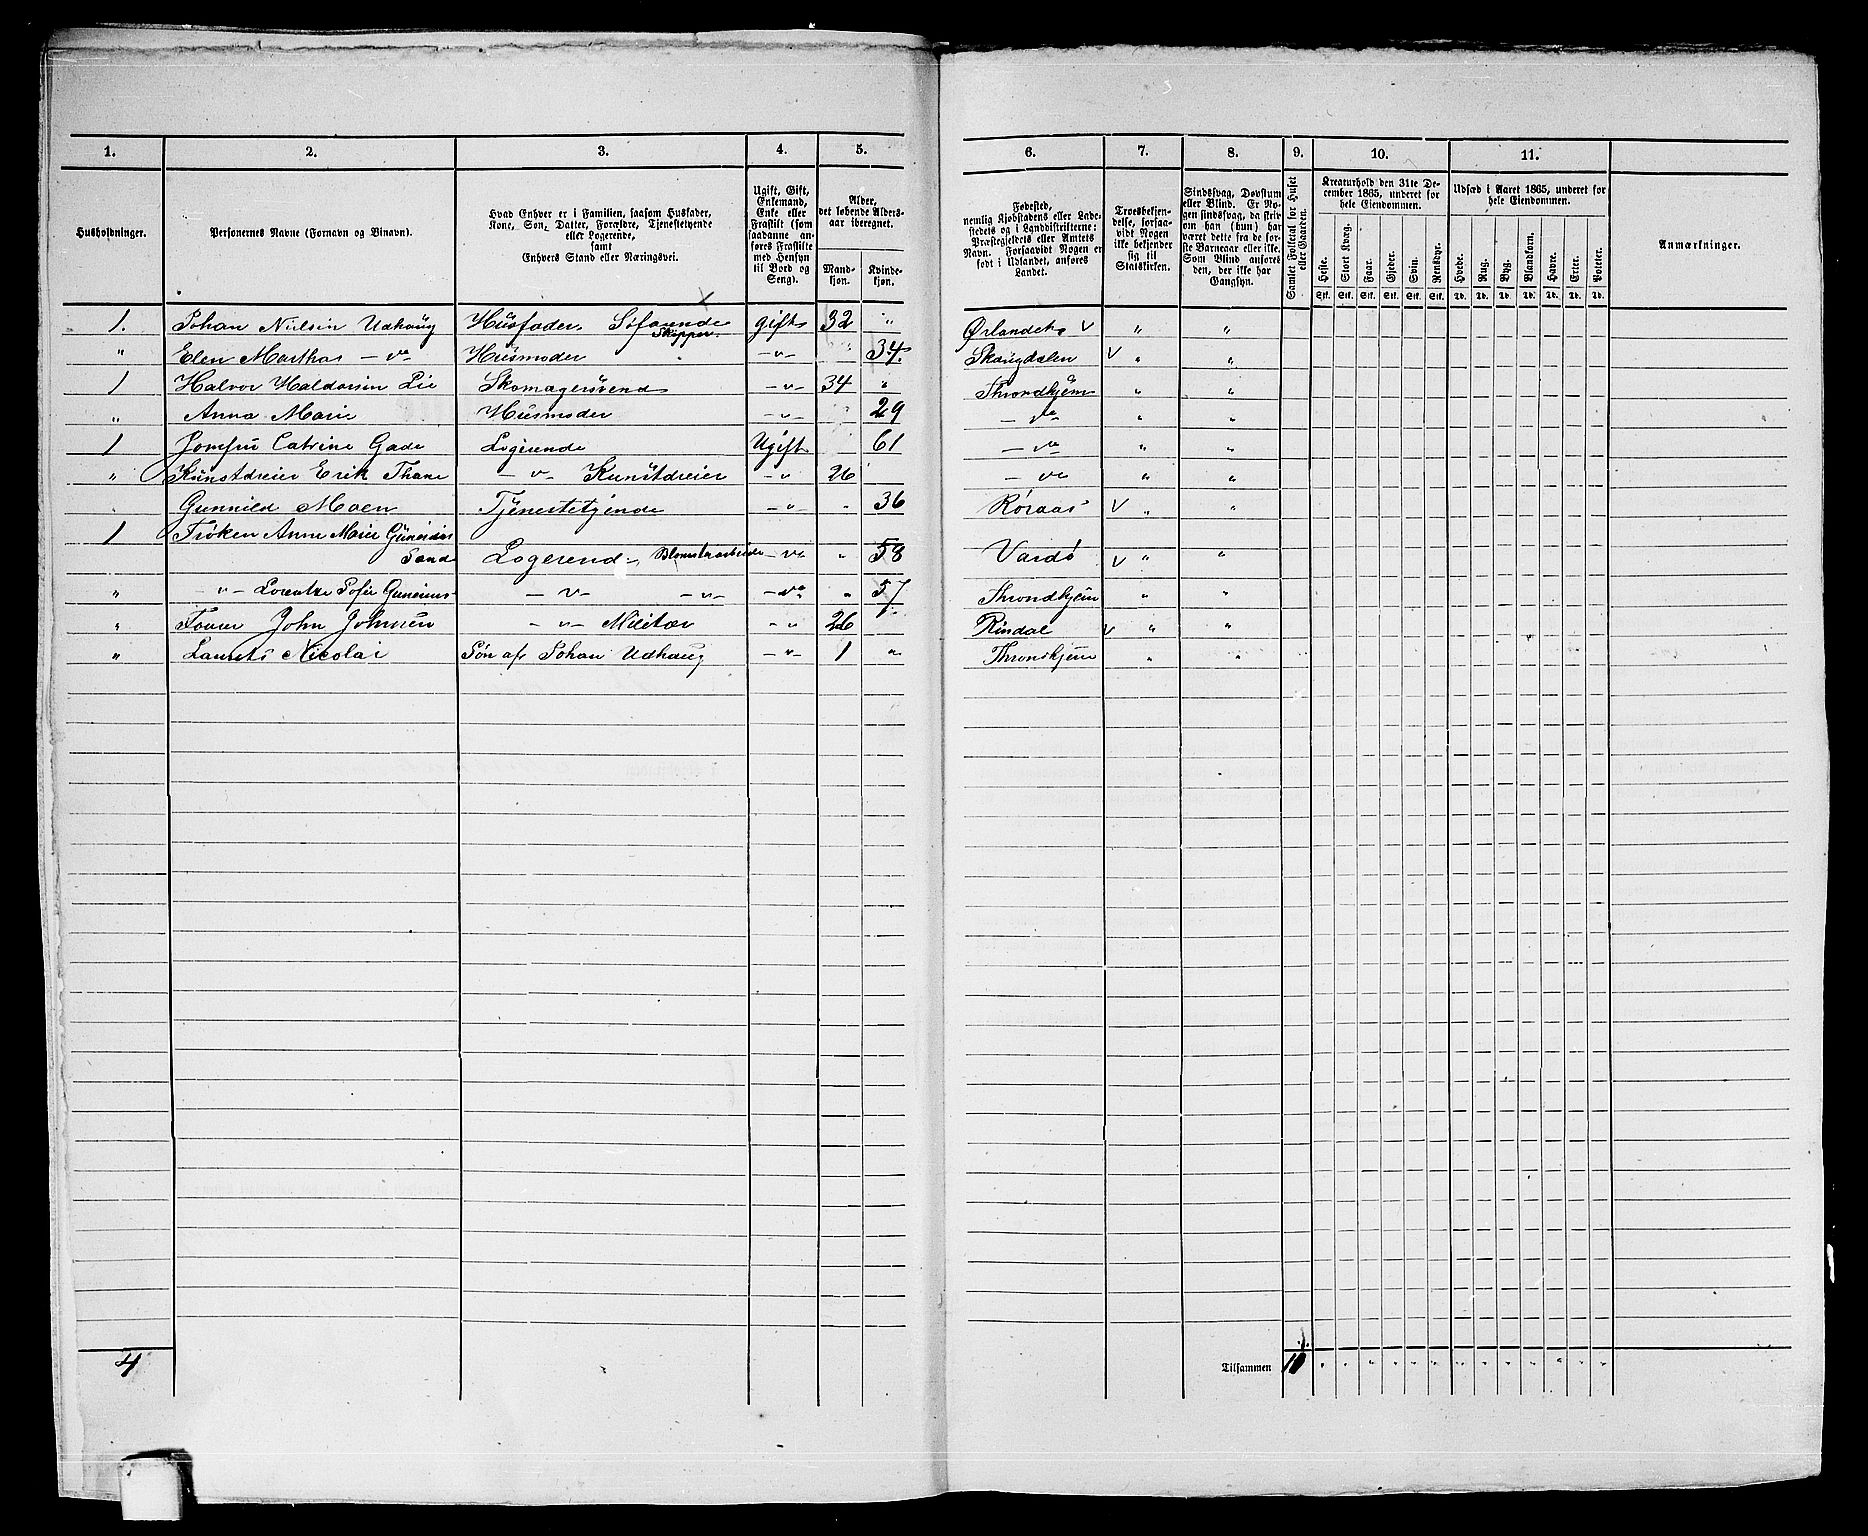 1. 2. 3. 4. 5. 6. 7. 8. 9. 10. 11.
Husholdninger.
Personernes Navne (Fornavn og Binavn).
Hvad Enhver er i Familien, saasom Husfader,
Kone, Søn, Datter, Forældre, Tjenestetyende
eller Logerende,
samt
Enhvers Stand eller Næringsvei.
Ugift, Gift,
Enkemand,
Enke eller
Fraskilt (som
saadanne an-
føres Fraskilte
med Hensyn
til Bord og
Seng).
Alder,
det løbende Alders-
aar iberegnet.
Mand-
kjøn.
Kvinde-
kjøn.
Fødested,
nemlig Kjøbstadens eller Lade-
stedets og i Landdistrifterne:
Præstegjeldets eller Amtets
Navn. Forsaavidt Nogen er
født i Udlandet, anføres
Landet.
Troesbekjen-
delse, forsaa-
vidt Nogen
ikke bekjender
sig til
Statskirken.
Sindssvag, Døvstum
eller Blind. Er No-
gen sindssvag, da skri-
ves om han (hun) har
været dette fra de før-
ste Barneaar eller ikke.
Som Blind anføres
den, der ikke har
Gangsyn.
Samlet Folketal for Huset
eller Gaarden.
Kreaturhold den 31te De-
cember 1865, underet for
hele Eiendommen.
Heste. Stort Kvæg. Faar. Gjeder. Svin. Rensdyr.
Stk. Stk. Stk. Stk. Stk. Stk.
Udsæd i Aaret 1865, underet for
hele Eiendommen.
Hvede. Rug. Byg. Blandkorn. Havre. Erter. Poteter.
Td. Td. Td. Td. Td. Td. Td.
Anmærkninger.
1. Johan Nielsin Udhaug Husfader, Søfarende Skipper. gift 32 " Ørlandet v " "
" Elen Martha — v — Husmoder — v — " 34. Skaugdalen v " "
1 Halvor Haldorsen Lie Skomagersvend — v — 34 " Throndhjem " "
" Anna Marie Husmoder — v — 29 — v — " "
1 Jomfru Catrine Gade Logerende Ugift 61 — v — " "
" Kunstdreier Erik Thane — v — Kunstdreier — v 26 — v — " "
Gunnild Moen Tjenestetyende — " — " 36 Røraas v " "
1 Frøken Anne Marie
Sand Logerend — Blomsterarbeider — v — " 58 Vardø v " "
" — " — Sofie — v — — v — — v — " 57 Throndhjem " "
" John Johnsen — v — Militær — " 26 Rindal v " "
" Laurits Nicolai Søn af Johan Udhaug — v — 1 " Throndhjem " "
4
Tilsammen